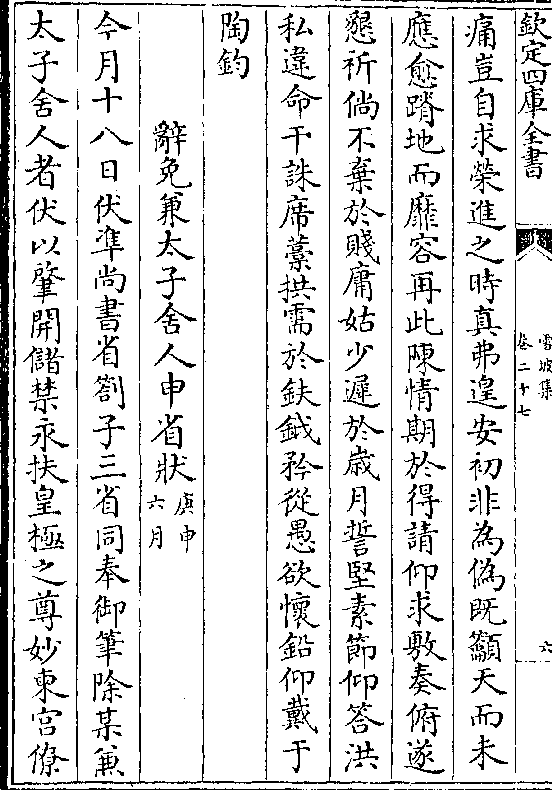 欽定四庫全書
雪坡集
卷二十七
六
痛豈自求榮進之時真弗遑安初非為偽既籲天而未
應愈蹐地而靡容再此陳情期於得請仰求敷奏俯遂
懇祈倘不棄於賤庸姑少遲於歲月誓堅素節仰答洪
私違命干誅席藁拱需於鈇鉞矜從愚欲懷鉛仰戴于
陶鈞
辭免兼太子舍人申省狀庚申六月
今月十八日伏準尚書省劄子三省同奉御筆除某兼
太子舍人者伏以肇開儲禁永扶皇極之尊妙柬宫僚